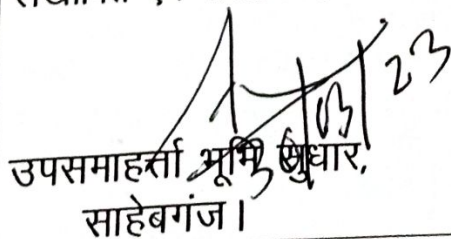 03/23
उपसमाहर्ता भूमि सुधार,
साहेबगंज।